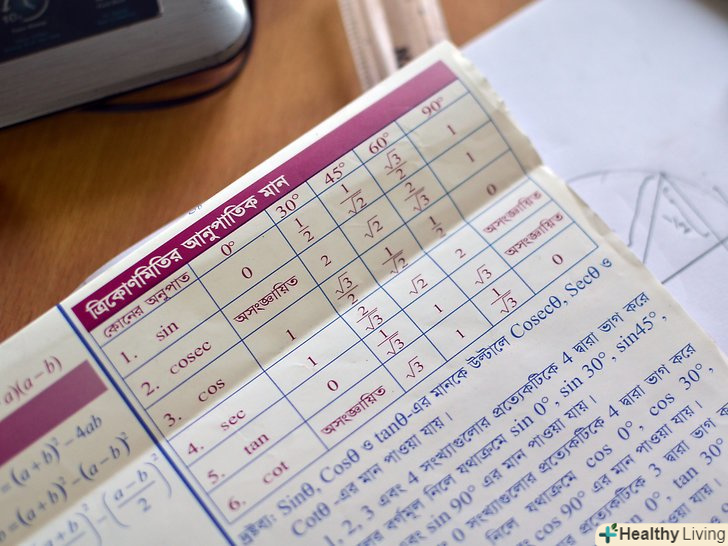 ত্রিকোণমিতির আনুপাতিক মান
কোনের অনুপাত 0° 30° 45° 60° 90°
1. sin 0 1/2 1/√2 √3/2 1
2. cosec অসংজ্ঞায়িত 2 √2 2/√3 1
3. cos 1 √3/2 1/√2 1/2 0
4. sec 1 2/√3 √2 2 অসংজ্ঞায়িত
5. tan 0 1/√3 1 √3 অসংজ্ঞায়িত
6. cot অসংজ্ঞায়িত √3 1 1/√3 0
দ্রষ্টব্য: Sinθ, Cosθ ও tanθ-এর মানকে উল্টালে Cosecθ, Secθ ও
Cotθ এর মান পাওয়া যায়।
1, 2, 3 এবং 4 সংখ্যাগুলোর প্রত্যেকটিকে 4 দ্বারা ভাগ করে
বর্গমূল নিলে যথাক্রমে sin 0°, sin 30°, sin45°,
sin 90° এর মান পাওয়া যায়।
0 সংখ্যাগুলোর প্রত্যেকটিকে 4 দ্বারা ভাগ করে
নিলে যথাক্রমে cos 0°, cos 30°,
cos 90° এর মান পাওয়া যায়।
প্রত্যেকটিকে 3 দ্বারা ভাগ
0°, tan 30°
a)(a−b)
=(a+b)²−4ab
=(a+b)²−(a−b)²
−(a−b/2)²
Healthy Living